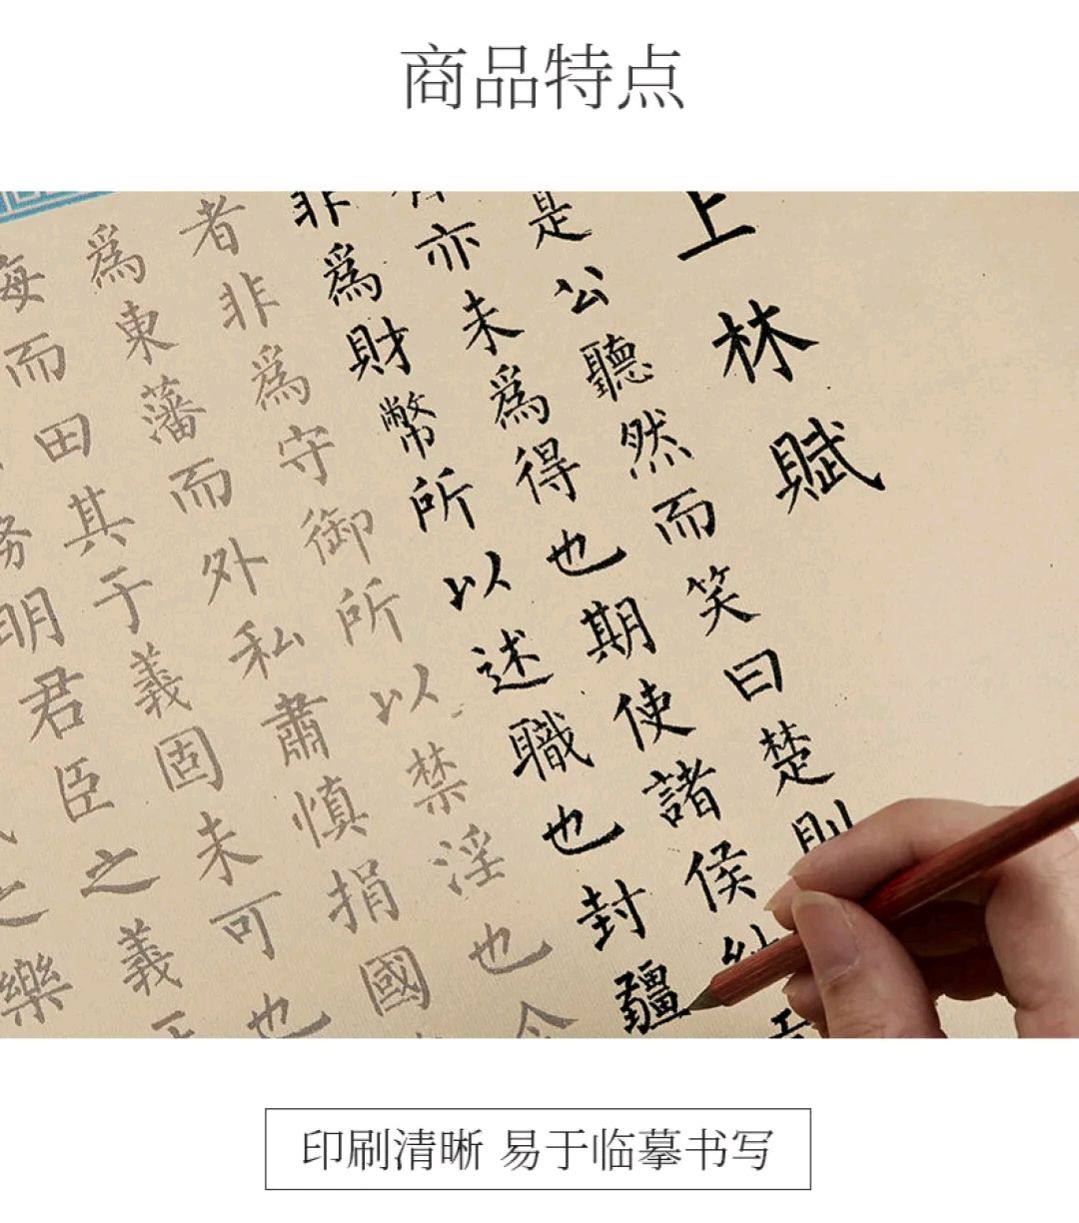 商品特点
上林賦
是公聽然而笑曰楚則
亦未爲得也期使諸侯
非爲財幣所以述職也封疆
者非爲守御所以禁淫也今
爲東藩而外私肅慎捐國
海而田其于義固未可也
務明君臣之義
之樂
印刷清晰 易于临摹书写